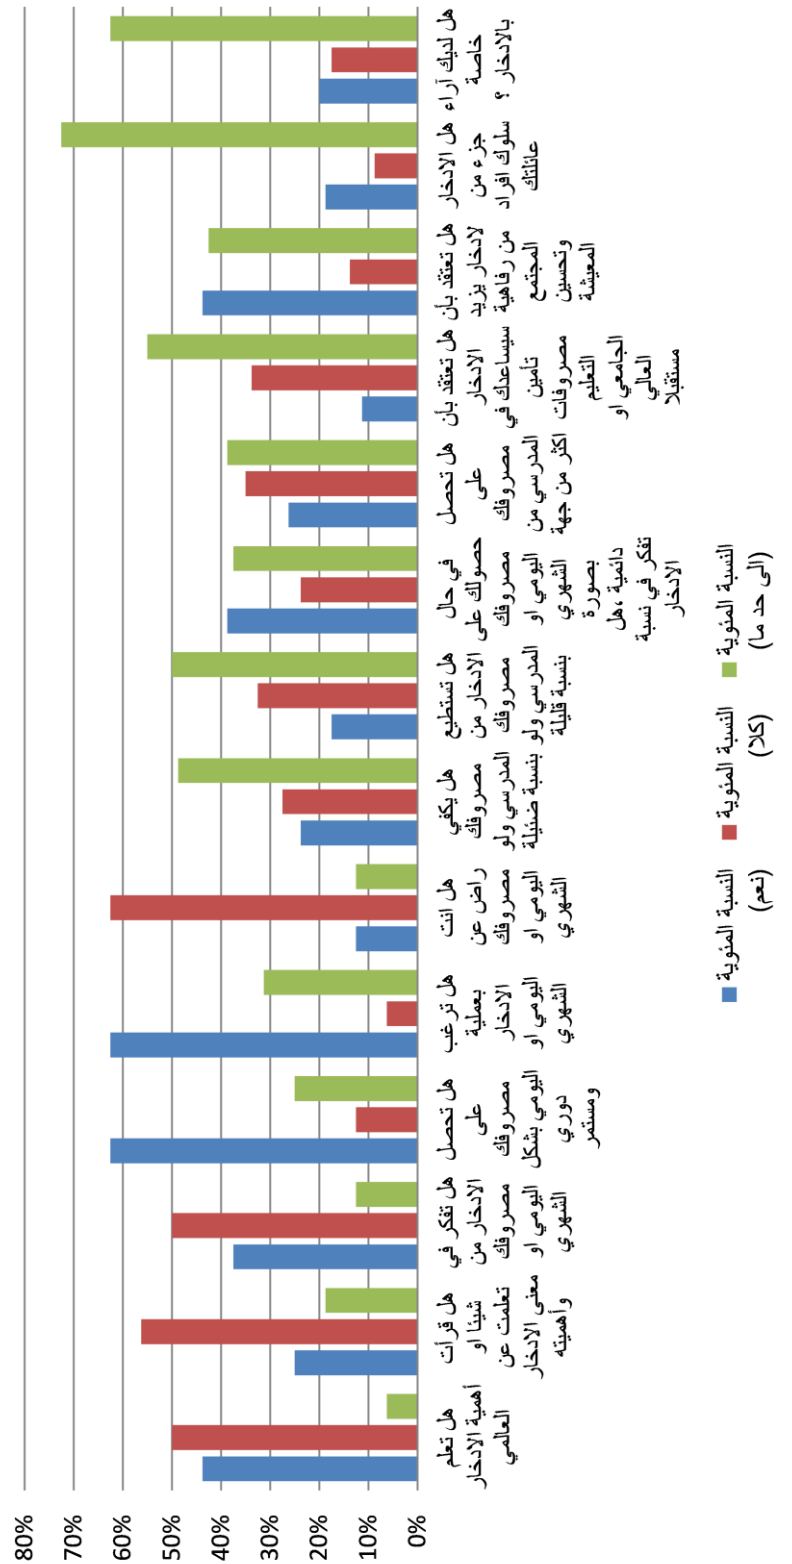 80%
70%
60%
50%
40%
30%
20%
10%
0%
هل تعلم
أهمية الادخار
العالمي
هل قرأت
شيئا او
تعلمت عن
معنى الادخار
وأهميته
هل تفكر في
الادخار من
مصروفك
اليومي او
الشهري
هل تحصل
على
مصروفك
اليومي بشكل
دوري
ومستمر
هل ترغب
بعملية
الادخار
اليومي او
الشهري
هل انت
راض عن
مصروفك
اليومي او
الشهري
هل يكفي
مصروفك
المدرسي ولو
بنسبة ضئيلة
هل تستطيع
الادخار من
مصروفك
المدرسي ولو
بنسبة قليلة
في حال
حصولك على
مصروفك
اليومي او
الشهري
بصورة
دائمية ،هل
تفكر في نسبة
الادخار
هل تحصل
على
مصروفك
المدرسي من
اكثر من جهة
هل تعتقد بأن
الادخار
سيساعدك في
تأمين
مصروفات
التعليم
الجامعي او
العالي
مستقبلا
هل تعتقد بأن
لادخار يزيد
من رفاهية
المجتمع
وتحسين
المعيشة
هل الادخار
جزء من
سلوك افراد
عائلتك
هل لديك آراء
خاصة
بالادخار ؟
النسبة المئوية
(نعم)
النسبة المئوية
(كلا)
النسبة المئوية
(الى حد ما)